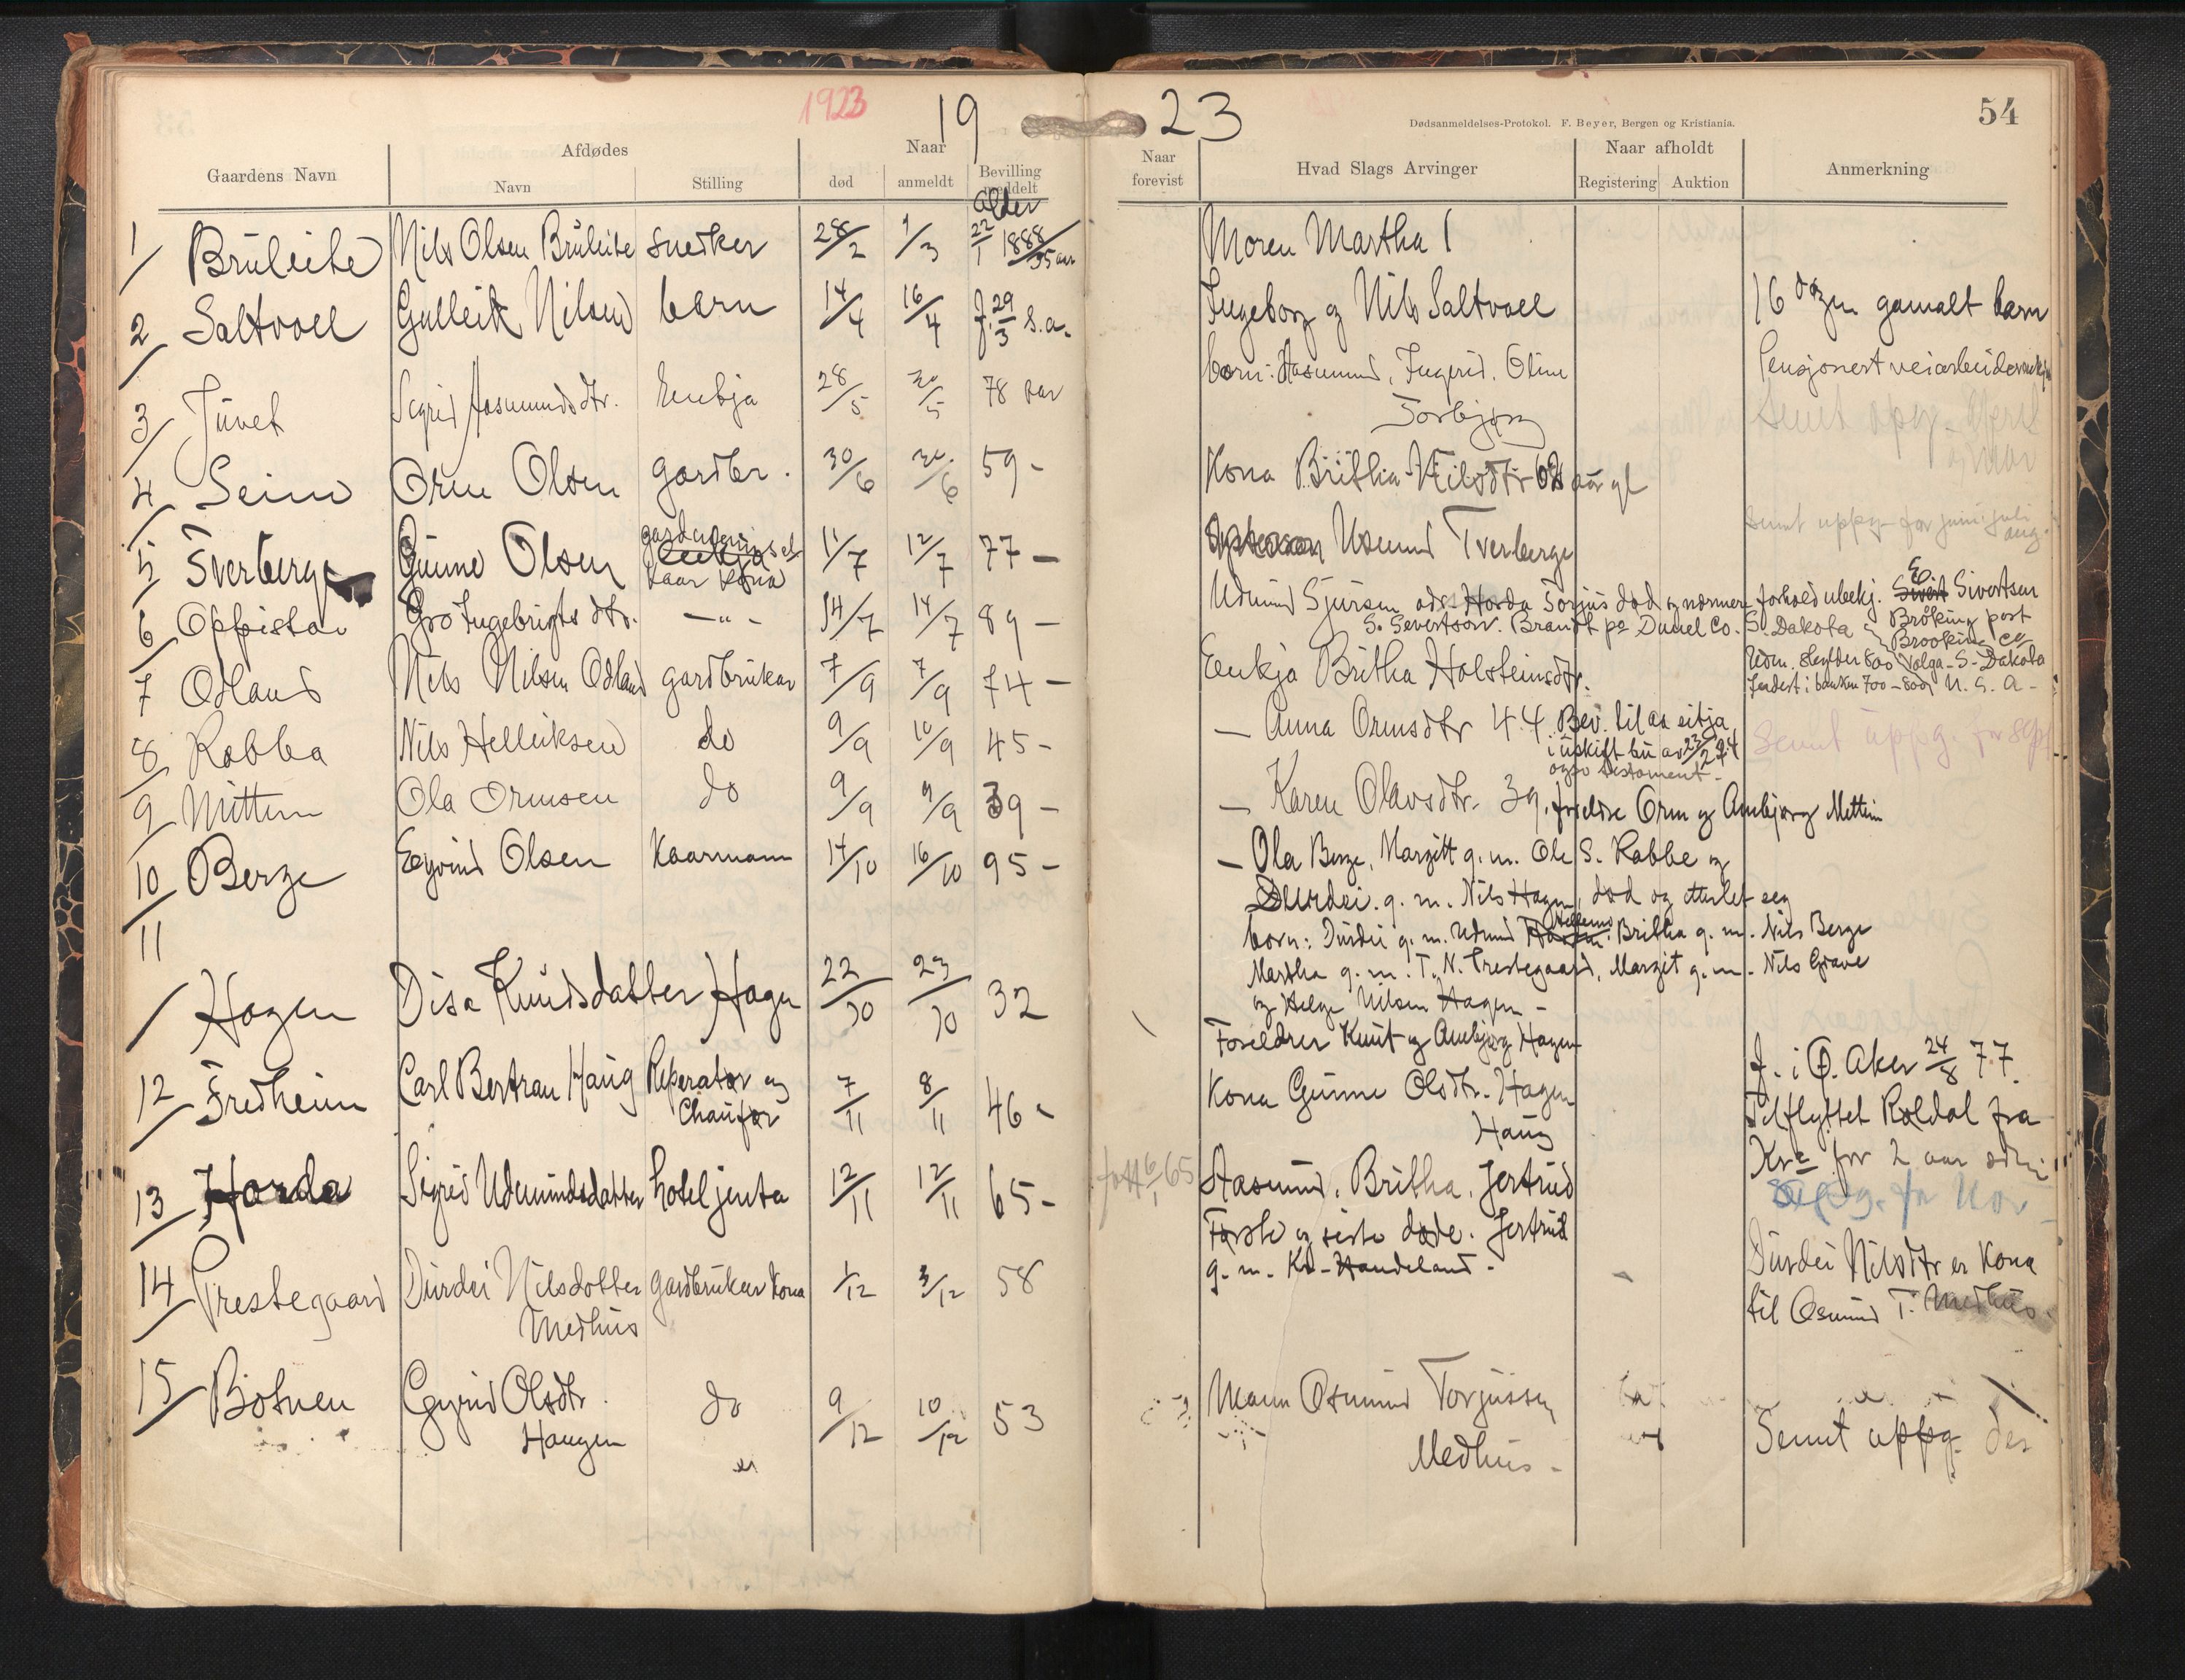 1923 19 23 54
Dødsanmeldelses-Protokol. F. Beyer, Bergen og Kristiania.
Gaardens Navn Afdødes Navn Stilling Naar død anmeldt Bevilling meddelt Naar forevist Hvad Slags Arvinger Naar afholdt Registering Auktion Anmerkning
Alder
1/ Brüleite Nils Olsen Brüleite snedker 28/2 1/3 22/1 1888/35 aar Moren Martha
2/ Saltvoll Gulleik Nilsen barn 14/4 16/4 f. 29/3 s.a. Ingeborg og Nils Saltvoll 16 dagen gamalt barn
3/ Jüvet Sigrid Aasmundsdtr. Enkja 28/5 30/5 78 aar born: Aasmund, Ingerid, Oline
Torbjørg
Pensjonert veiarbeider
Sendt oppg. April
og mai
4/ Seim Orm Olsen gardbr. 30/6 30/6 59 - Kona Britha Nilsdtr 62 aar gl
Sendt uppg. for juni juli
aug.
5/ Tverberge Gunne Olsen
Kaar Kona 11/7 12/7 77 - Usmund Tverberge
6/ Oppistov Gro Ingebrigts dtr. - " - 14/7 14/7 89 - Udmund Sjursen Horda Torjus død og nærmere forhold ubekj. Sivertsen
S. Severtson. Brandt po Duuel Co. S. Dakota Bröking post
Brookins Co
Volga - S - Dakota
U. S. A -
7 Odland Nils Nilsen Odland gardbrukar 7/9 7/9 74 - Enkja Britha Holsteinsdtr.
8/ Rabba Nils Helleiksen do 9/9 10/9 45 - - Anna Ormsdtr 44 Bev. til aa sitja
i uskift bu av 23/2 24
ogso testament -
Sendt uppg. for sept
9/ Mittun Ola Ormsen do 9/9 9/9 39 - - Karen Olavsdtr. 39. foreldre Orm og Ambjørg Mettun
10/ Berge Eyvind Olsen Kaarmann 14/10 16/10 95 - - Ola Berge, Margitt g. m. Ole S. Rabbe og
Durdei. g. m. Nils Hagen, død og etterlet seg
born: Durdei g. m. Udmund Hellemo Britha g. m. Nils Berge
Martha g. m. T. N. Prestegaard, Margit g. m. Nils Grave
og Helge Nilsen Hagen -
11/ Hagen Disa Knudsdatter Hagen 22/10 23/10 32 Foreldrer Knut og Ambjørg Hagen
12/ Fredheim Carl Bertran Haug Reperatør og
Chaufør 7/11 8/11 46 - Kona Gunne Olsdtr. Hagen
Haug
f. i Ø. Aker 24/8 77.
Tilflyttet Røldal fra
Kra for 2 aar
13/ Horda Sigrid Udmundsdatter hoteljenta 12/11 12/11 65 - født 6/1 65 Aasmund, Britha, Jertrud
Første og siste døde. Jertrud
g. m. Kn. Handeland.
uppg. for Nov
14/ Prestegaard Durdei Nilsdotter
Medhus gardbrukar kona 1/12 3/12 58
Durdei Nilsdtr er Kona
til Osmund T. Medhus.
15/ Botnen Gyrid Olsdtr.
Haugen do 9/12 10/12 53 Mann Osmund Torjussen
Medhus -
Sendt uppg. des